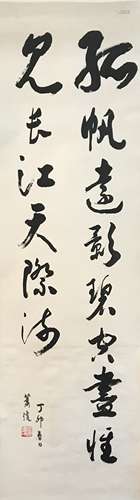 孤帆遠影碧空盡惟
見長江天際流
丁卯春日